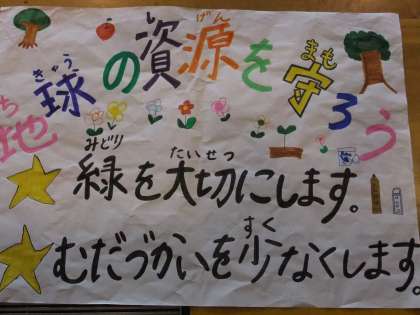 地球の資源を守ろう
ち きゅう し げん まも
緑を大切にします。
みどり たいせつ
むだづかいを少なくします。
すく